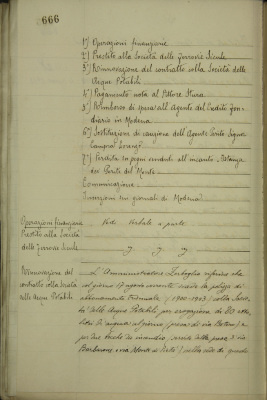 666
1°) Operazioni finanziarie
2°) Prestito alla Società delle Ferrovie Sicule
3°) Rinnovazione del contratto colla Società delle
Acque Potabili
4°) Pagamento nota al Pittore
5°) Rimborso di spesa all'Agente del Credito Fon-
diario in Modena
6°) Sostituzione di cauzione dell'Agente
7°) Perdita in pegni venduti all'incanto.
dei Periti del Monte.
Comunicazione.
Inserzioni sui giornali di Modena.
Operazioni finanziarie
Vedi Verbale a parte
Prestito alla Società
delle Ferrovie Sicule
Rinnovazione del
contratto colla Società
delle Acque Potabili
L'Amministratore riferisce che
col giorno 17 agosto corrente scade la polizza di
abbonamento Triennale (1900-1903) colla Socie-
tà delle Acque Potabili per erogazione di 20 etto-
litri d'acqua al giorno
per due bocche da incendio
Barbaroux, e via Monte di Pietà)